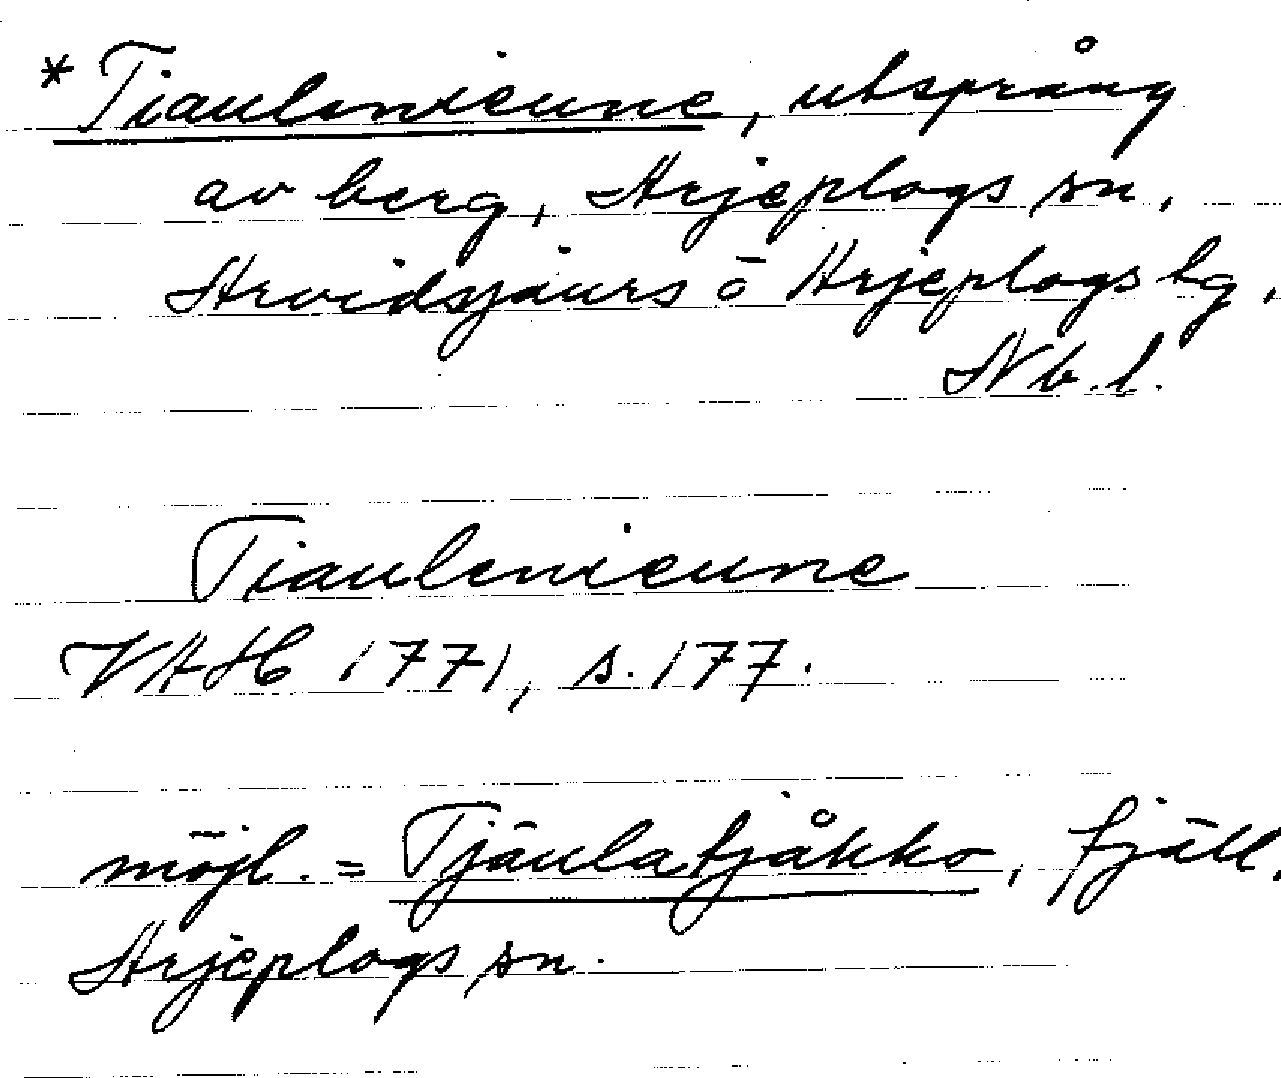 * Tiaulenieune, utsprång
av berg, Arjeplogs sn,
Arvidsjaurs o Arjeplogs lg,
Nb. l.
Tiaulenieune
VAH 1771, s. 177.
möjl. = Tjäulatjåkko, fjäll,
Arjeplogs sn.